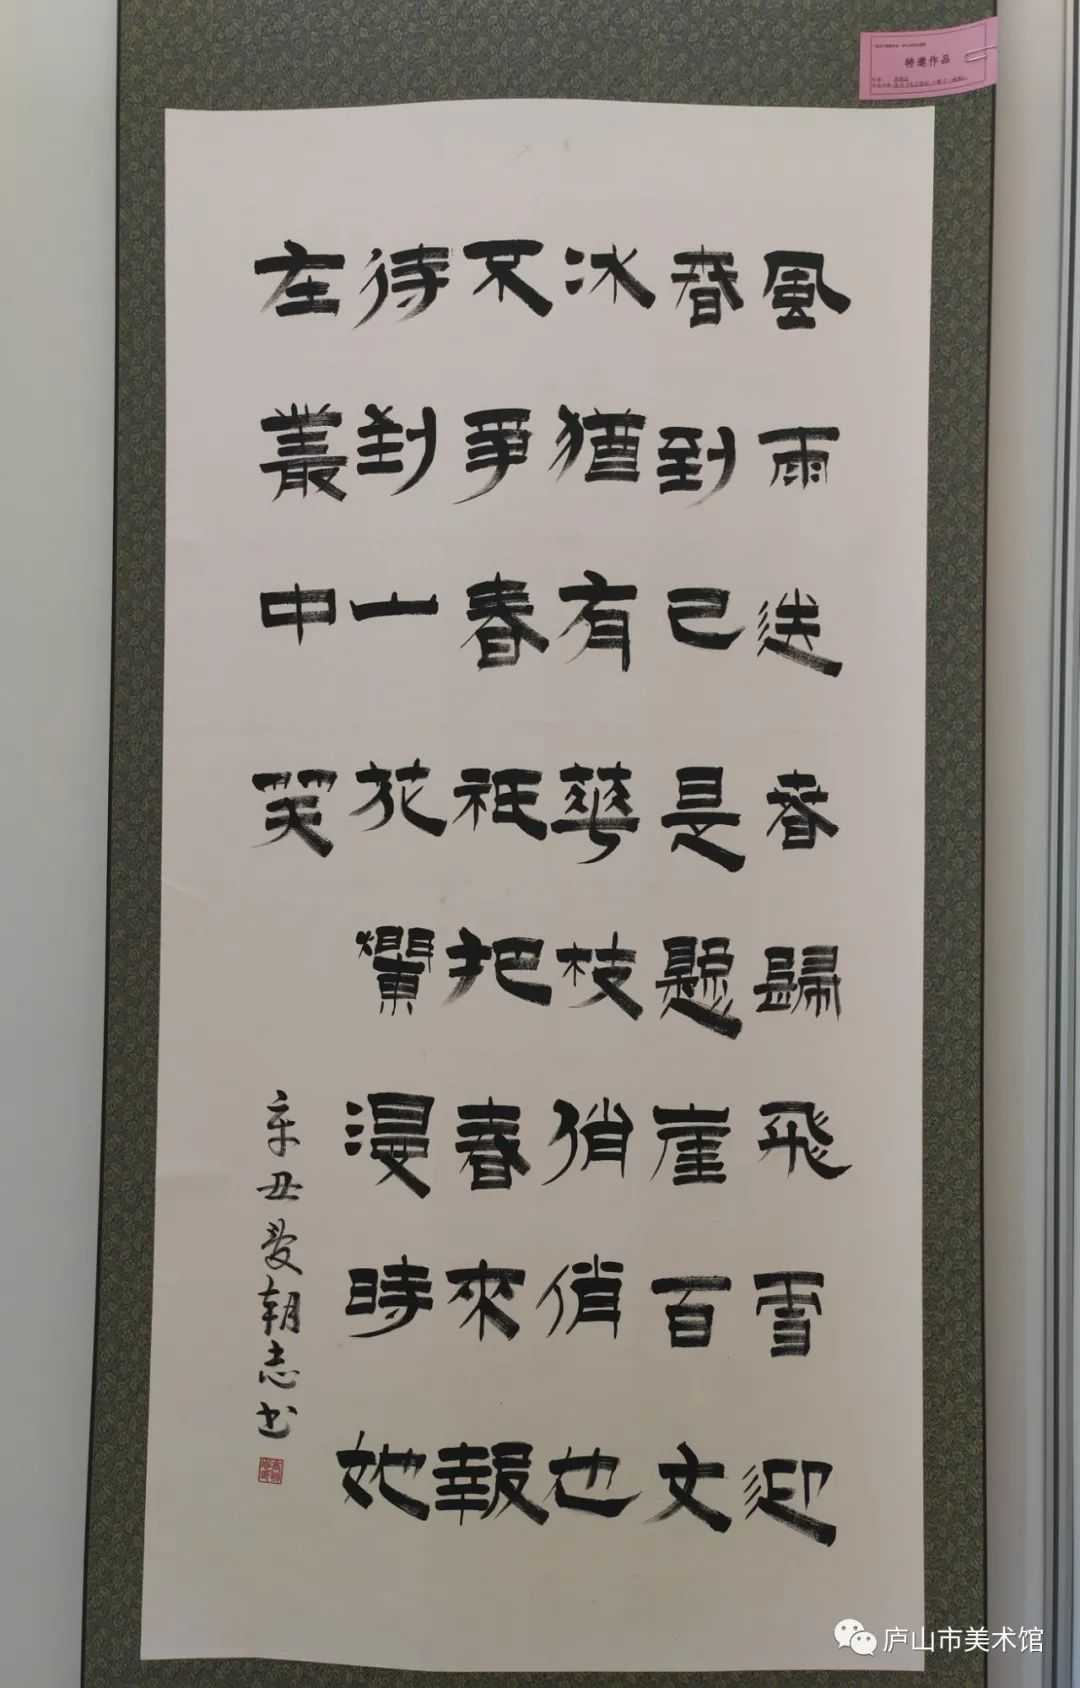 特邀作品
風雨送春歸飛雪迎
春到已是懸崖百丈
冰猶有華枝俏俏也
不爭春祇把春來報
待到山花爛漫時她
在叢中笑
辛丑夏朝志书
庐山市美术馆